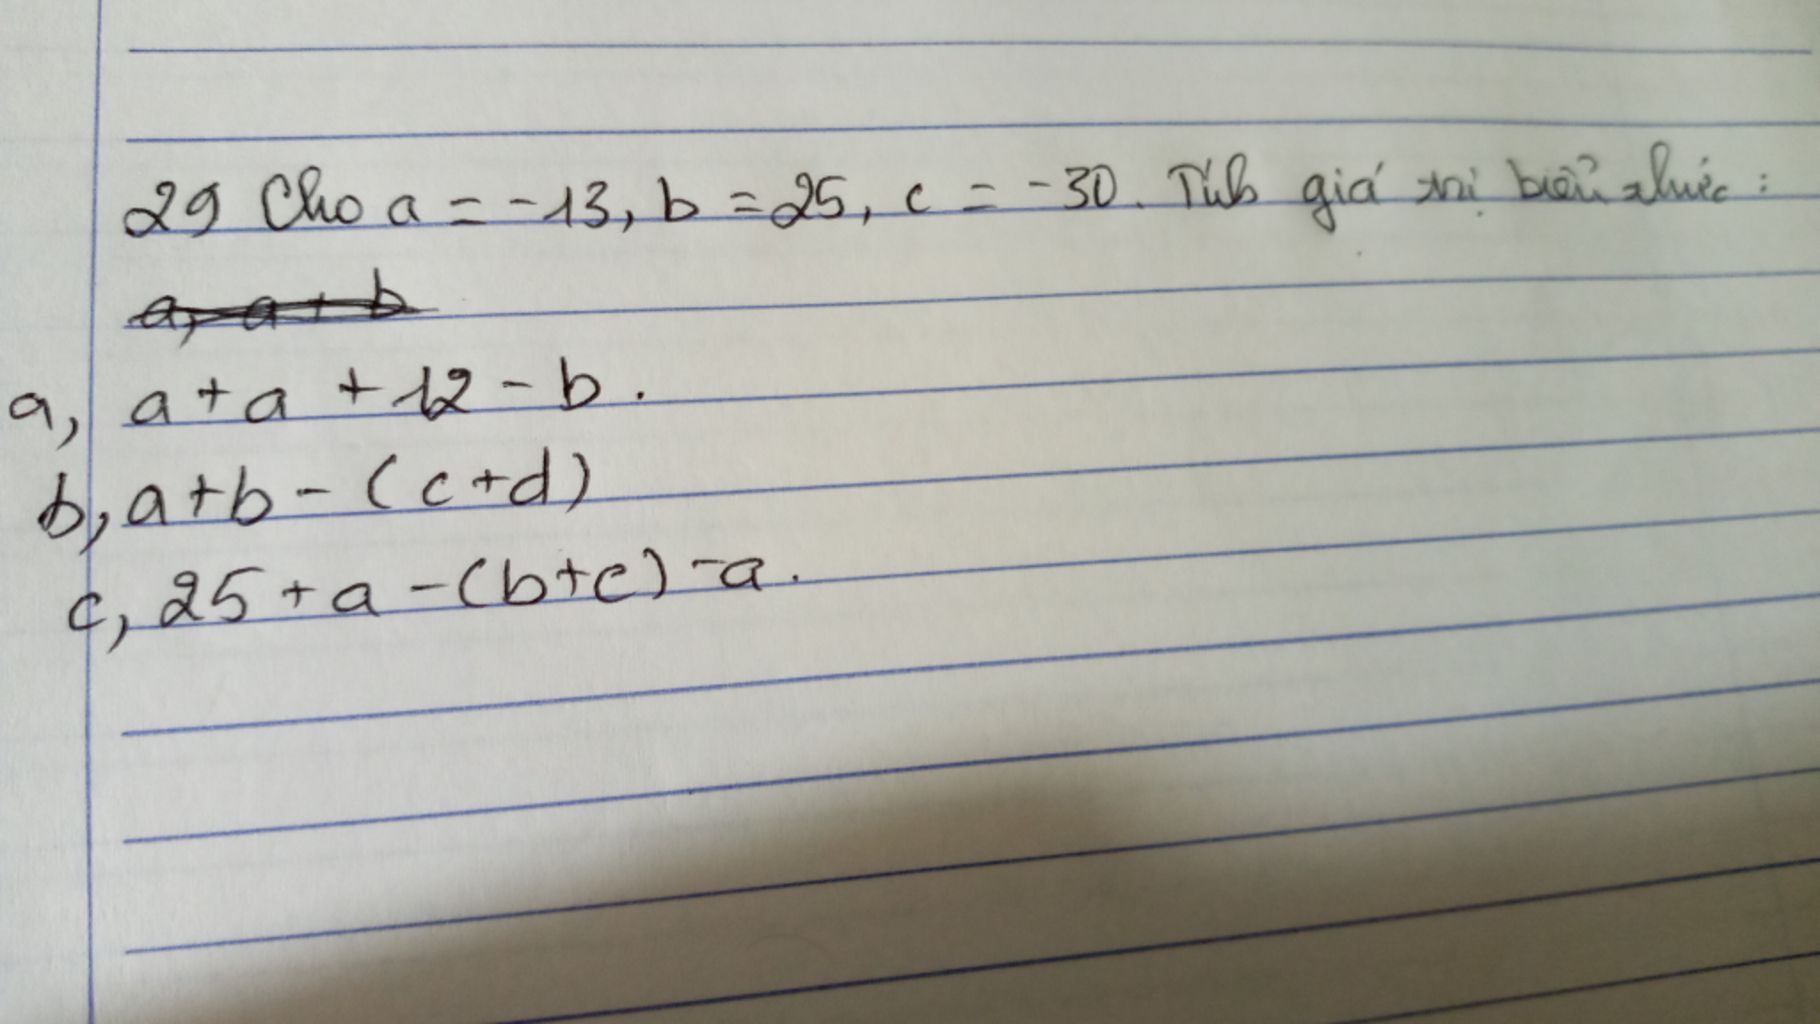 29 Cho a = -13, b = 25, c = -30. Tính giá trị biểu thức:
a, a + b
a, a + a + 12 - b.
b, a + b - (c + d)
c, 25 + a - (b + c) - a.